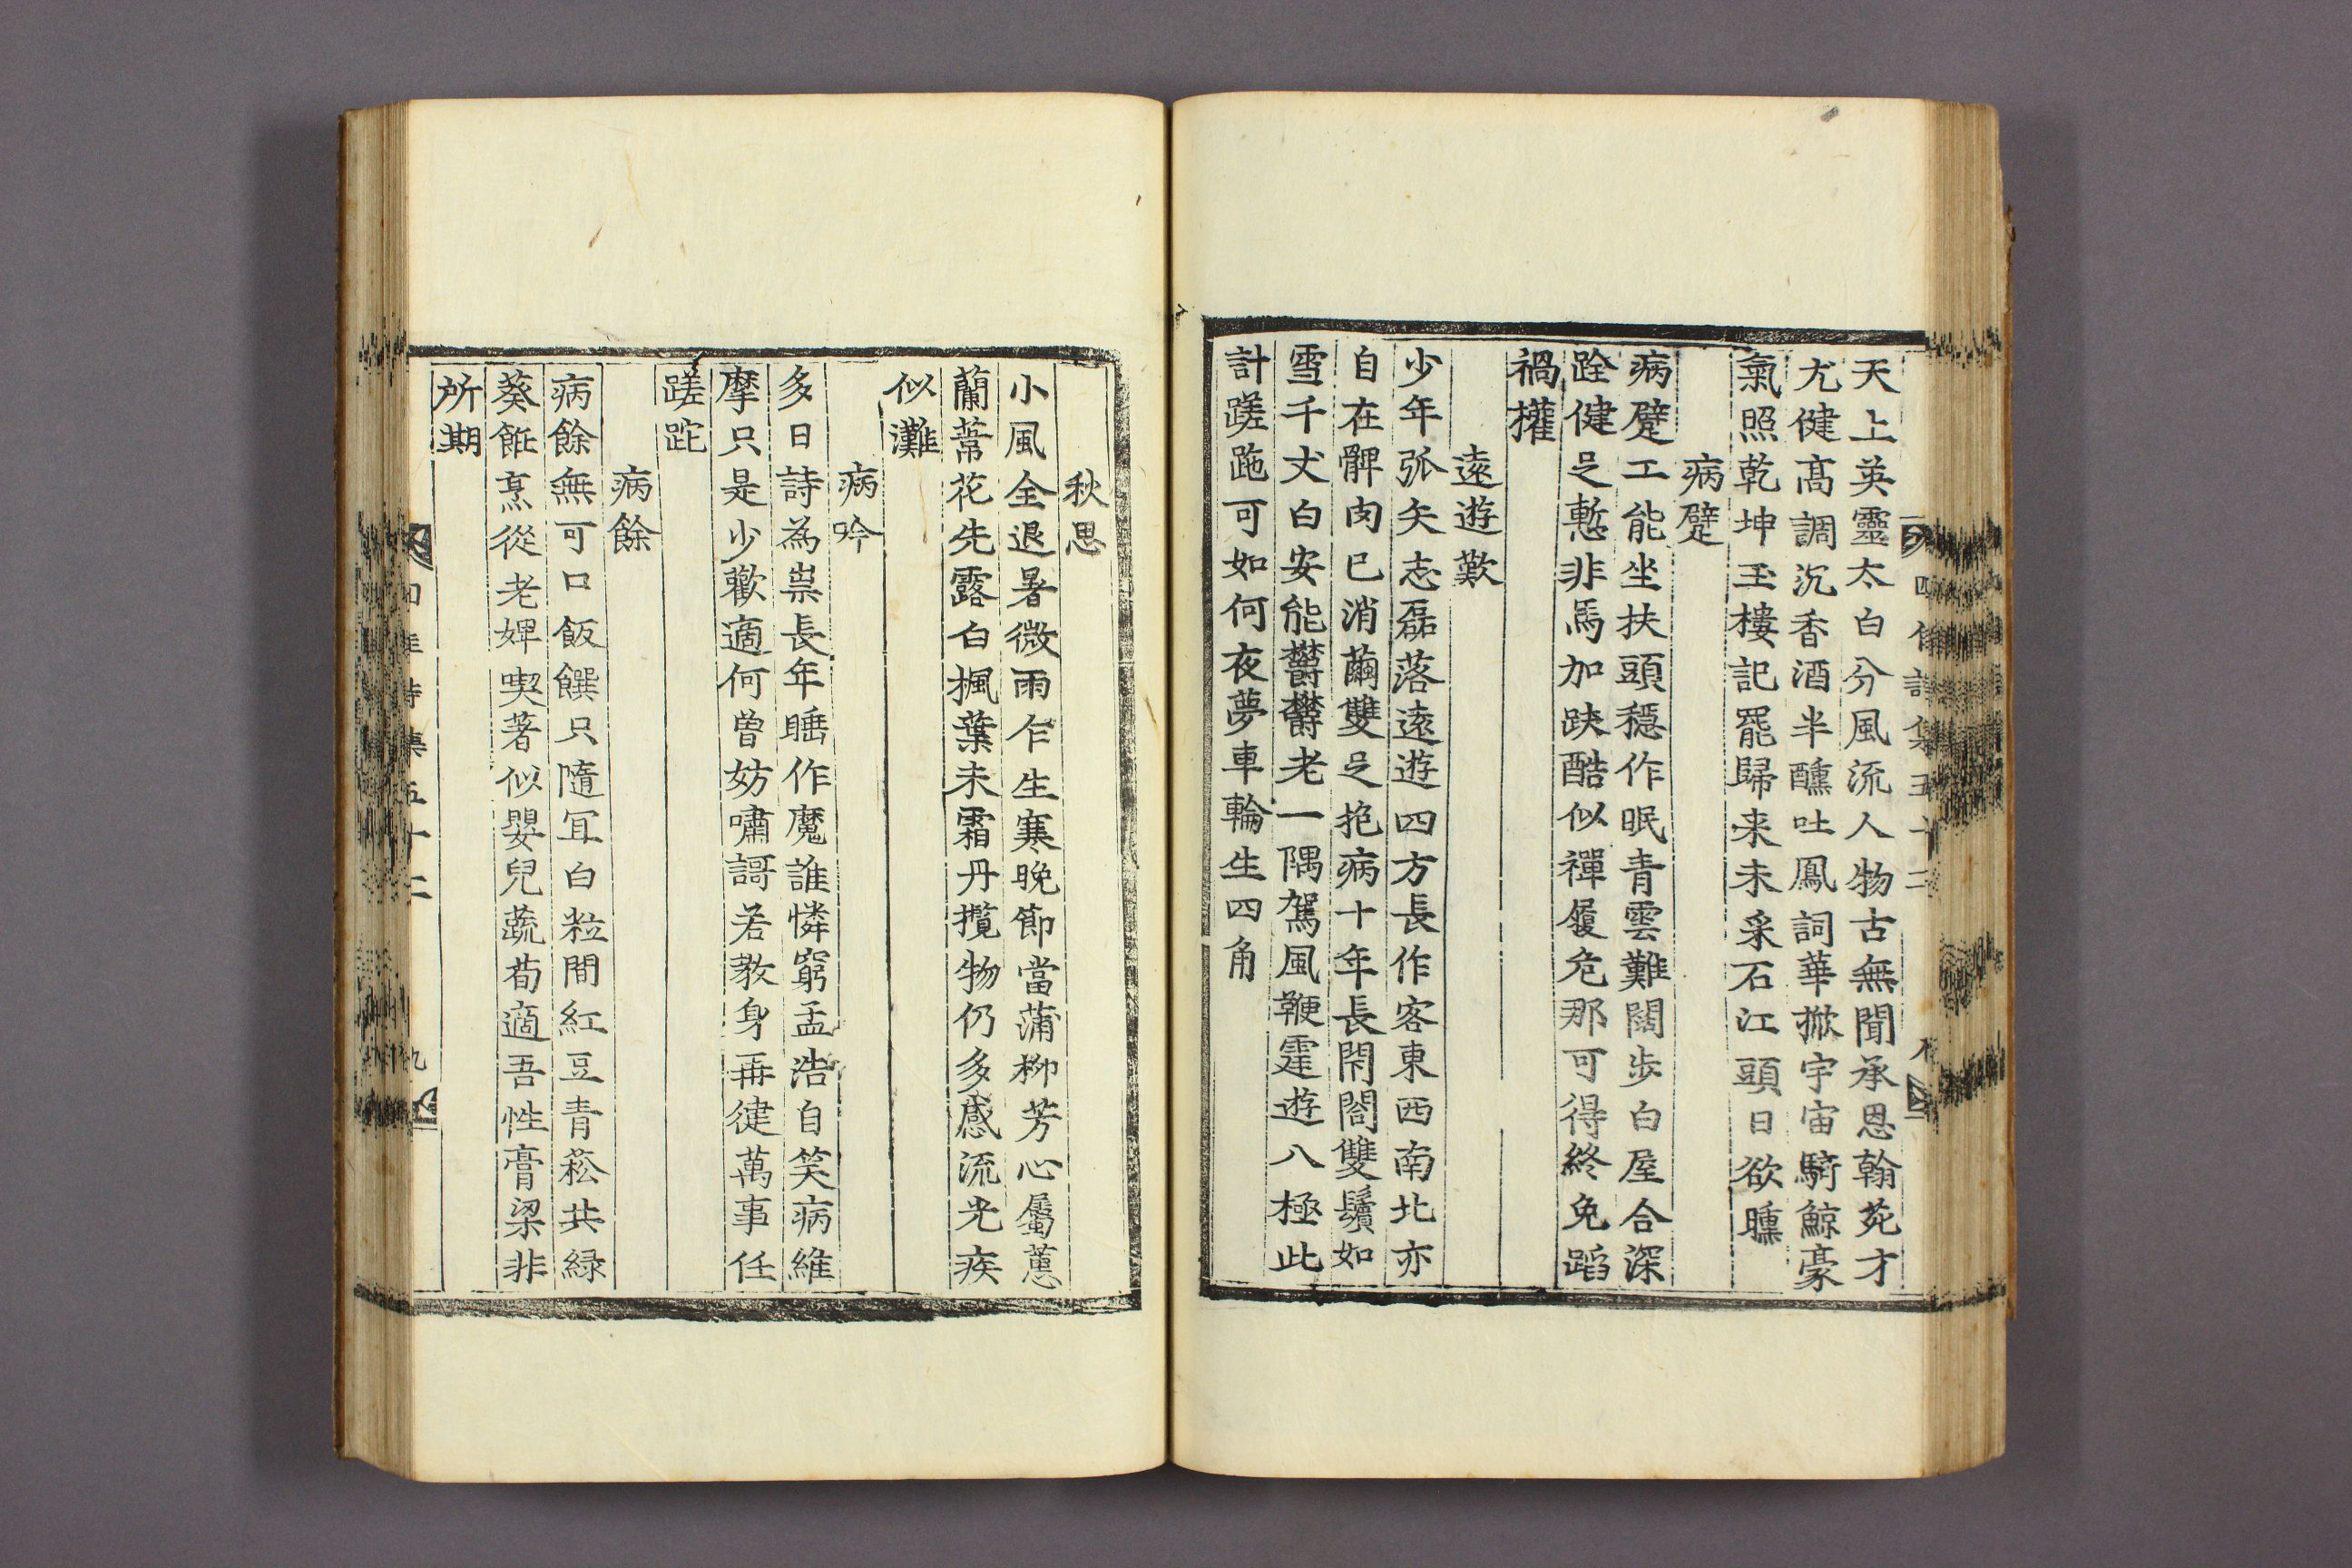 天上英靈太白分風流人物古無聞承恩翰苑才
尤健高調沉香酒半醺吐鳳詞華掀宇宙騎鯨豪
氣照乾坤玉樓記罷歸来未采石江頭日欲曛
病躄
病躄工能坐扶頭穩作眠青雲難闊步白屋合深
跧健足慙非馬加趺酷似禪履危那可得終免蹈
禍權
遠遊歎
少年弧矢志磊落遠遊四方長作客東西南北亦
自在髀肉已消繭雙足抱病十年長閉閤雙鬢如
雪千丈白安能鬱鬱老一隅駕風鞭霆遊八極此
計蹉跎可如何夜夢車輪生四角
四佳詩集五十二
秋思
小風全退暑微雨乍生寒晚節當蒲柳芳心屬蕙
蘭蓼花先露白楓葉未霜丹攬物仍多感流光疾
似灘
病吟
多日詩為祟長年睡作魔誰憐窮孟浩自笑病維
摩只是少歡適何曾妨嘯謌若教身再健萬事任
蹉跎
病餘
病餘無可口飯饌只隨宜白粒間紅豆青菘共綠
葵飪烹從老婢喫著似嬰兒蔬荀適吾性膏粱非
所期
四佳詩集五十二 九